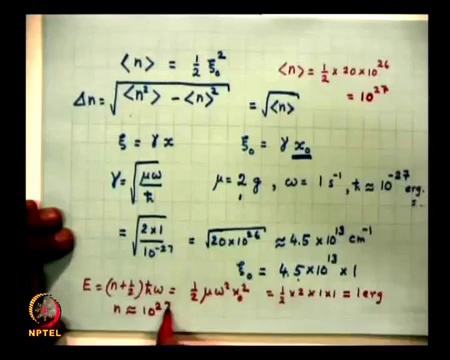 <n> = 1/2 ξ₀²
<n> = 1/2 × 20 × 10²⁶
= 10²⁷
Δn = √(<n²> − <n>²) = √<n>
ξ = γ x    ξ₀ = γ x₀
γ = √(μω/ħ)    μ = 2 g , ω = 1 s⁻¹ , ħ ≈ 10⁻²⁷ erg.
= √(2×1/10⁻²⁷) = √(20×10²⁶) ≈ 4.5 × 10¹³ cm⁻¹
ξ₀ = 4.5 × 10¹³ × 1
E = (n+1/2) ħω = 1/2 μω² x₀² = 1/2 × 2 × 1 × 1 = 1 erg
n ≈ 10²⁷
NPTEL